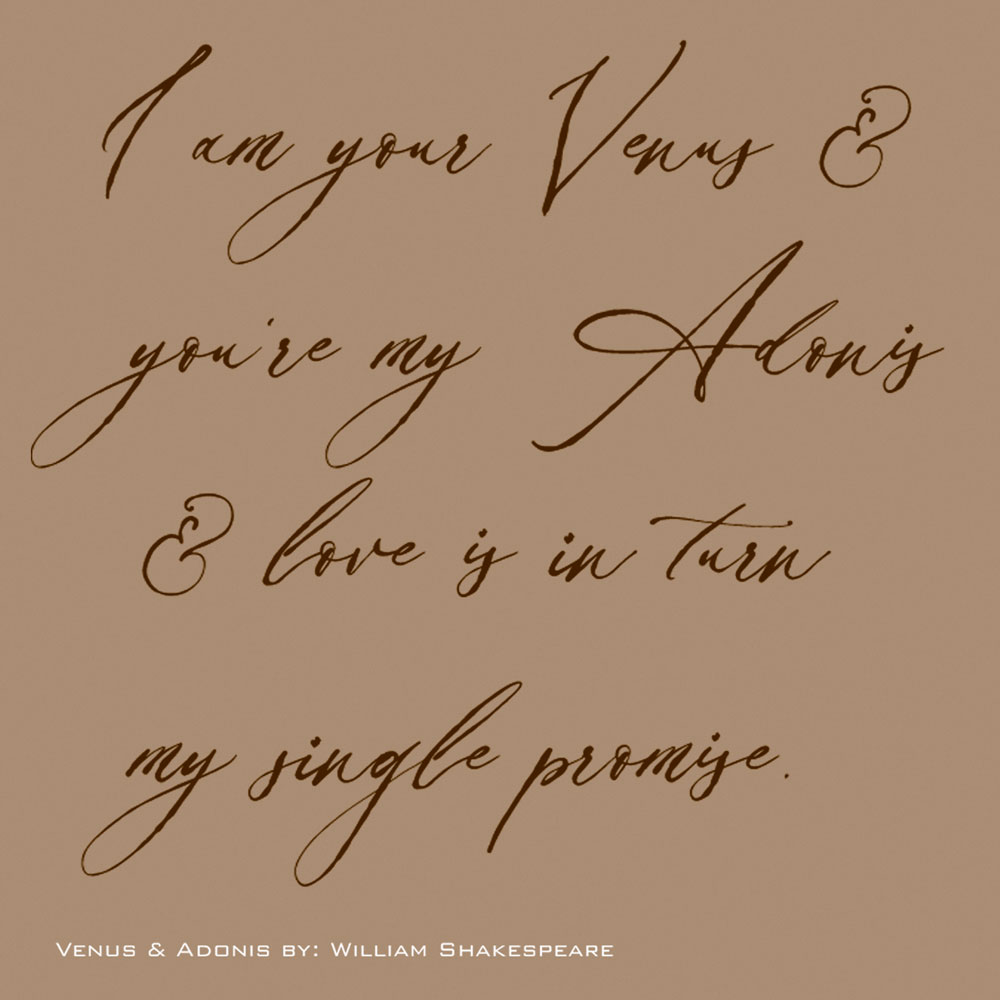 I am your Venus &
you're my Adonis
& love is in turn
my single promise.
Venus & Adonis by: William Shakespeare